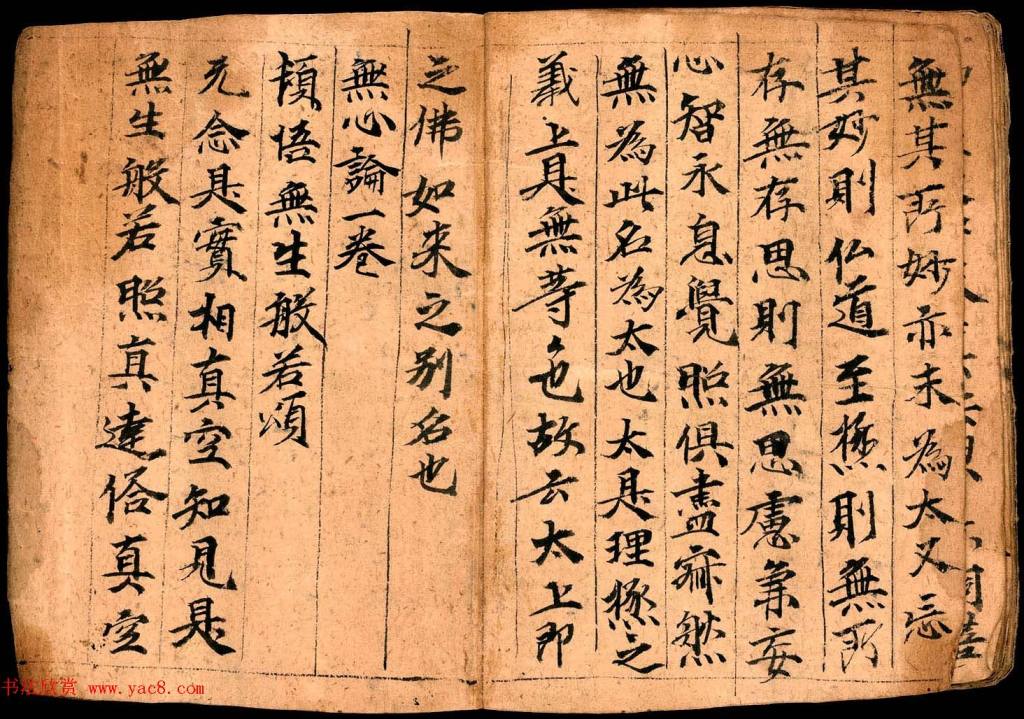 無其所妙亦未為太又忘
其妙則仏道至極則無所
存無存思則無思慮兼妄
心智永息覺照俱盡寂然
無為此名為太也太是理極之
義上是無等也故云太上即
之佛如来之别名也
無心論一卷
頓悟無生般若頌
无念是實相真空知見是
無生般若照真達俗真空
书法欣赏 www.yac8.com